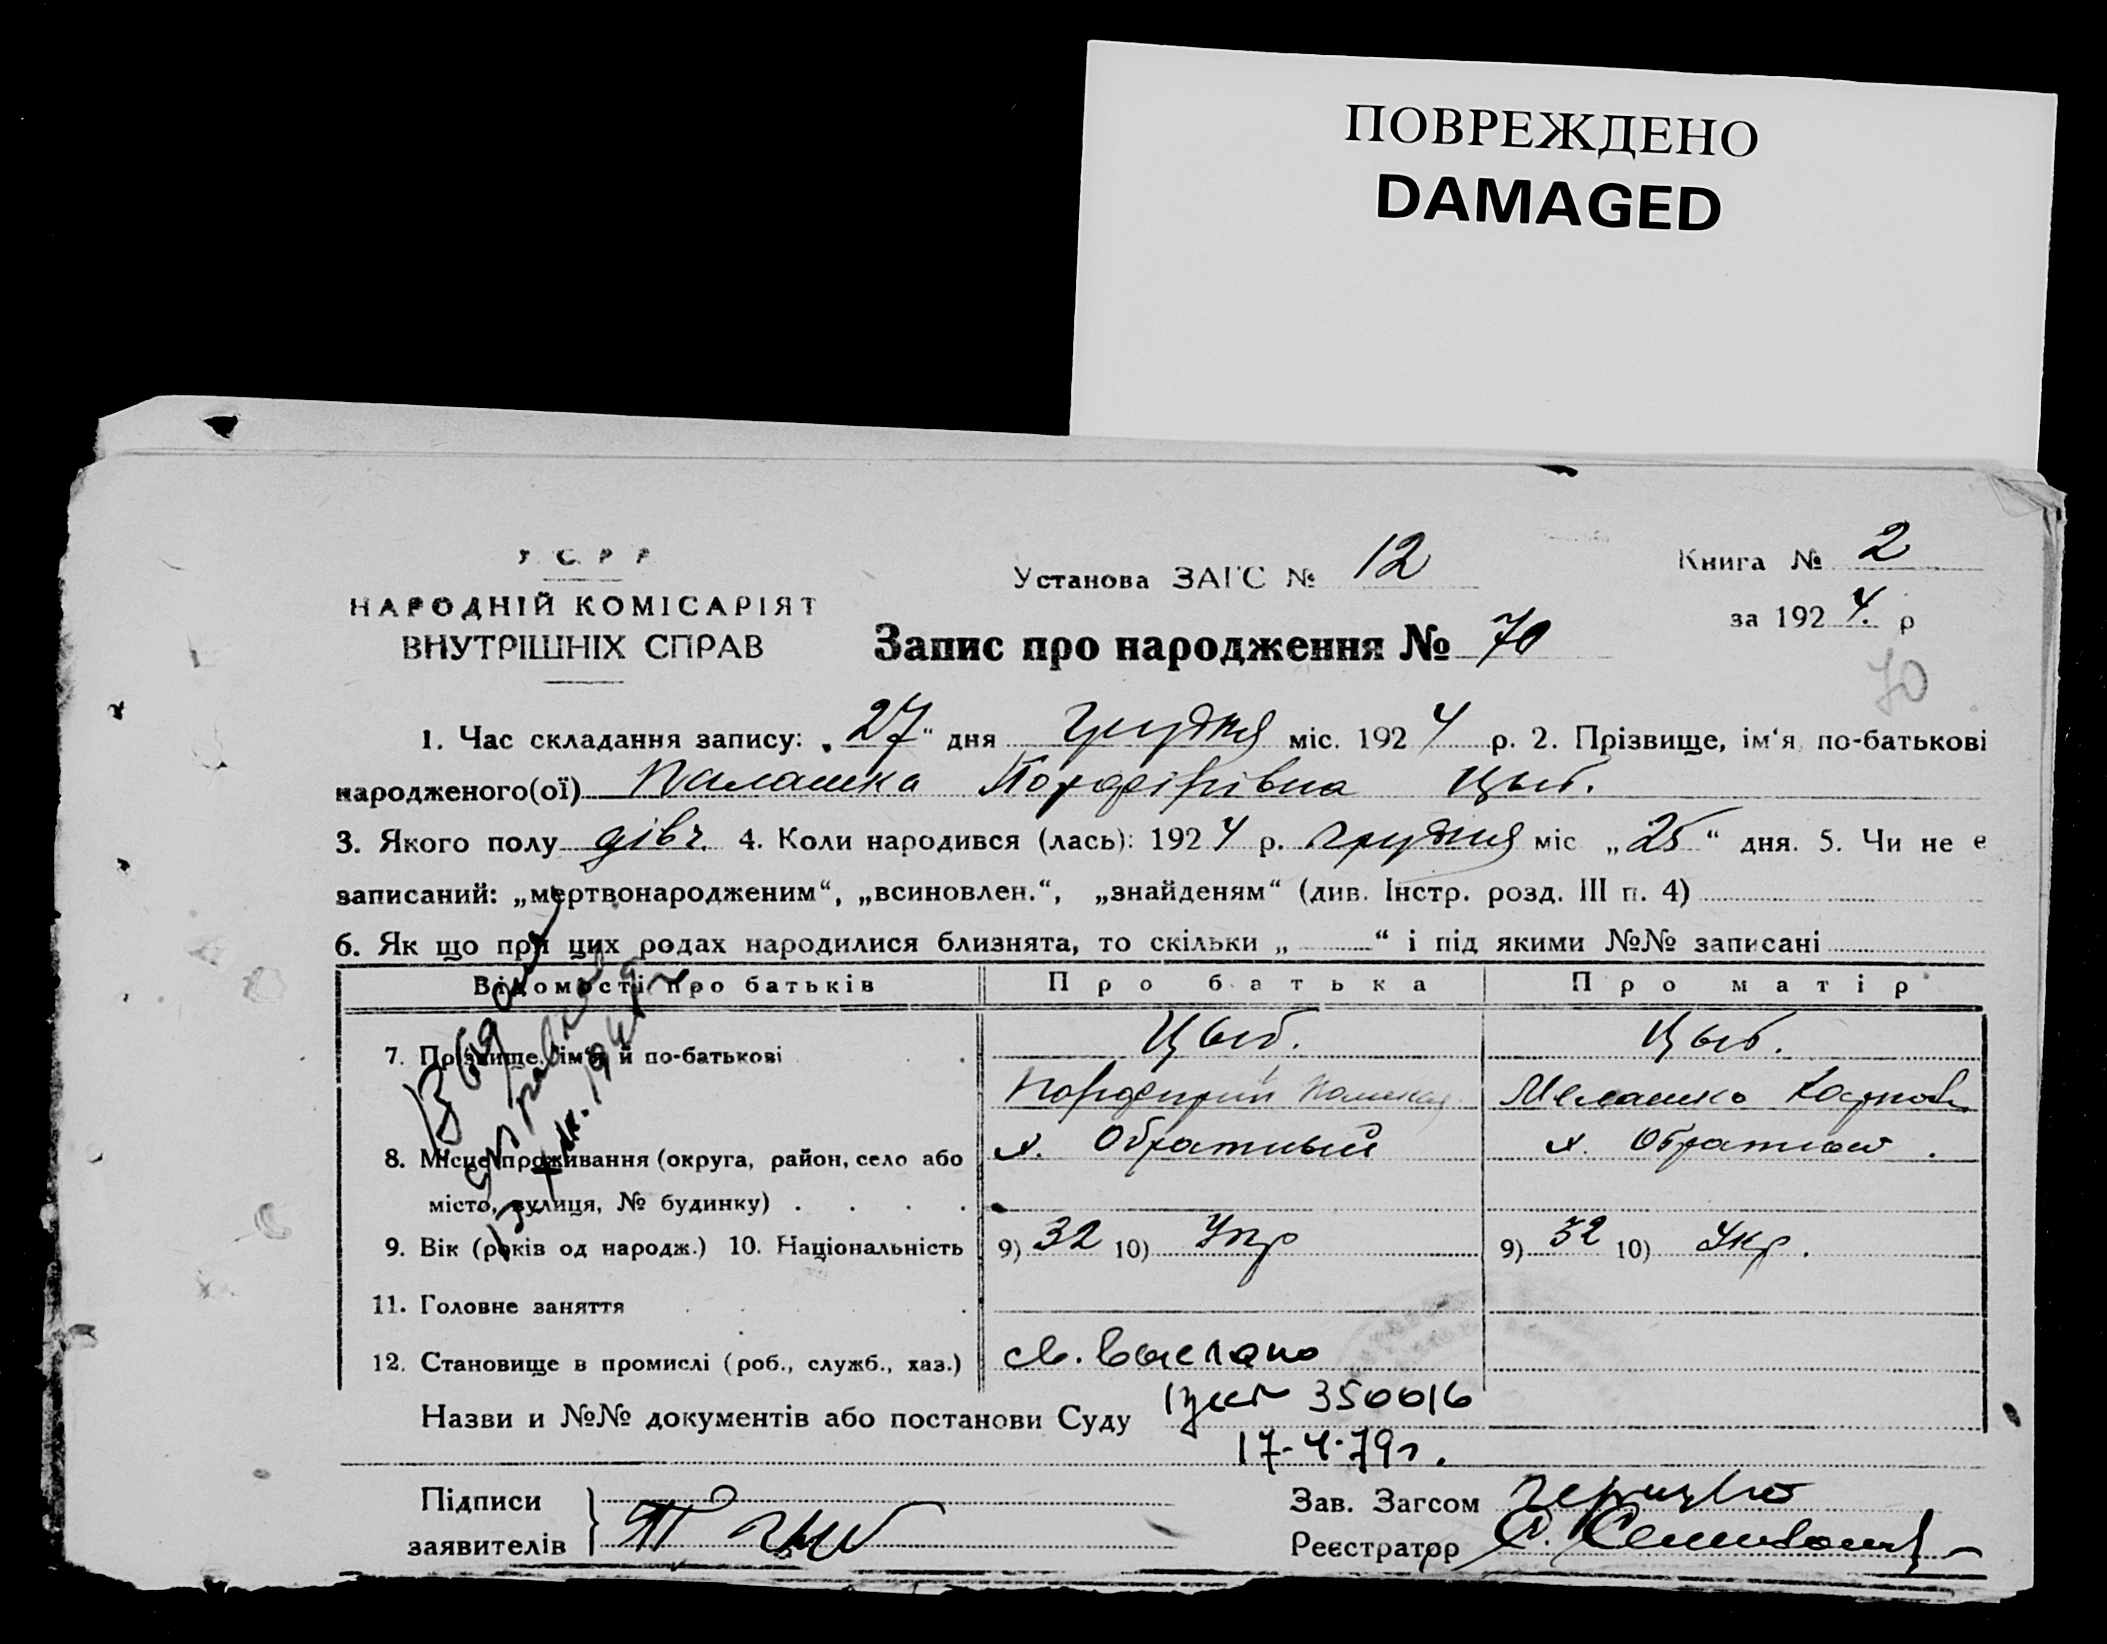 ПОВРЕЖДЕНО
DAMAGED
У. С. Р. Р.
НАРОДНІЙ КОМІСАРІЯТ
ВНУТРІШНІХ СПРАВ
Установа ЗАГС № 12
Книга № 2
за 1924. р
Запис про народження № 70
70
1. Час складання запису: „27“ дня грудня міс. 1924 р. 2. Прізвище, ім'я, по-батькові
народженого(ої) Палашка Порфірівна Цыб.
3. Якого полу дівч. 4. Коли народився (лась): 1924 р. грудня міс „25“ дня. 5. Чи не є
записаний: „мертвонародженим“, „всиновлен.“, „знайденям“ (див. Інстр. розд. III п. 4)
6. Як що при цих родах народилися близнята, то скільки „ “ і під якими №№ записані
Відомості про батьків Про батька Про матір
7. Прізвище, ім'я й по-батькові Цыб. Цыб.
Порфирий Мелашка
8. Місце проживання (округа, район, село або х. Обратный х.
місто, вулиця, № будинку)
9. Вік (років од народж.) 10. Національність 9) 32 10) Укр 9) 32 10) Укр.
11. Головне заняття
12. Становище в промислі (роб., служб., хаз.) св. выслано
Назви и №№ документів або постанови Суду 350016
17-4-79г.
Выдана
справка
1941 г
Підписи
заявителів П Цыб
Зав. Загсом
Реєстратор